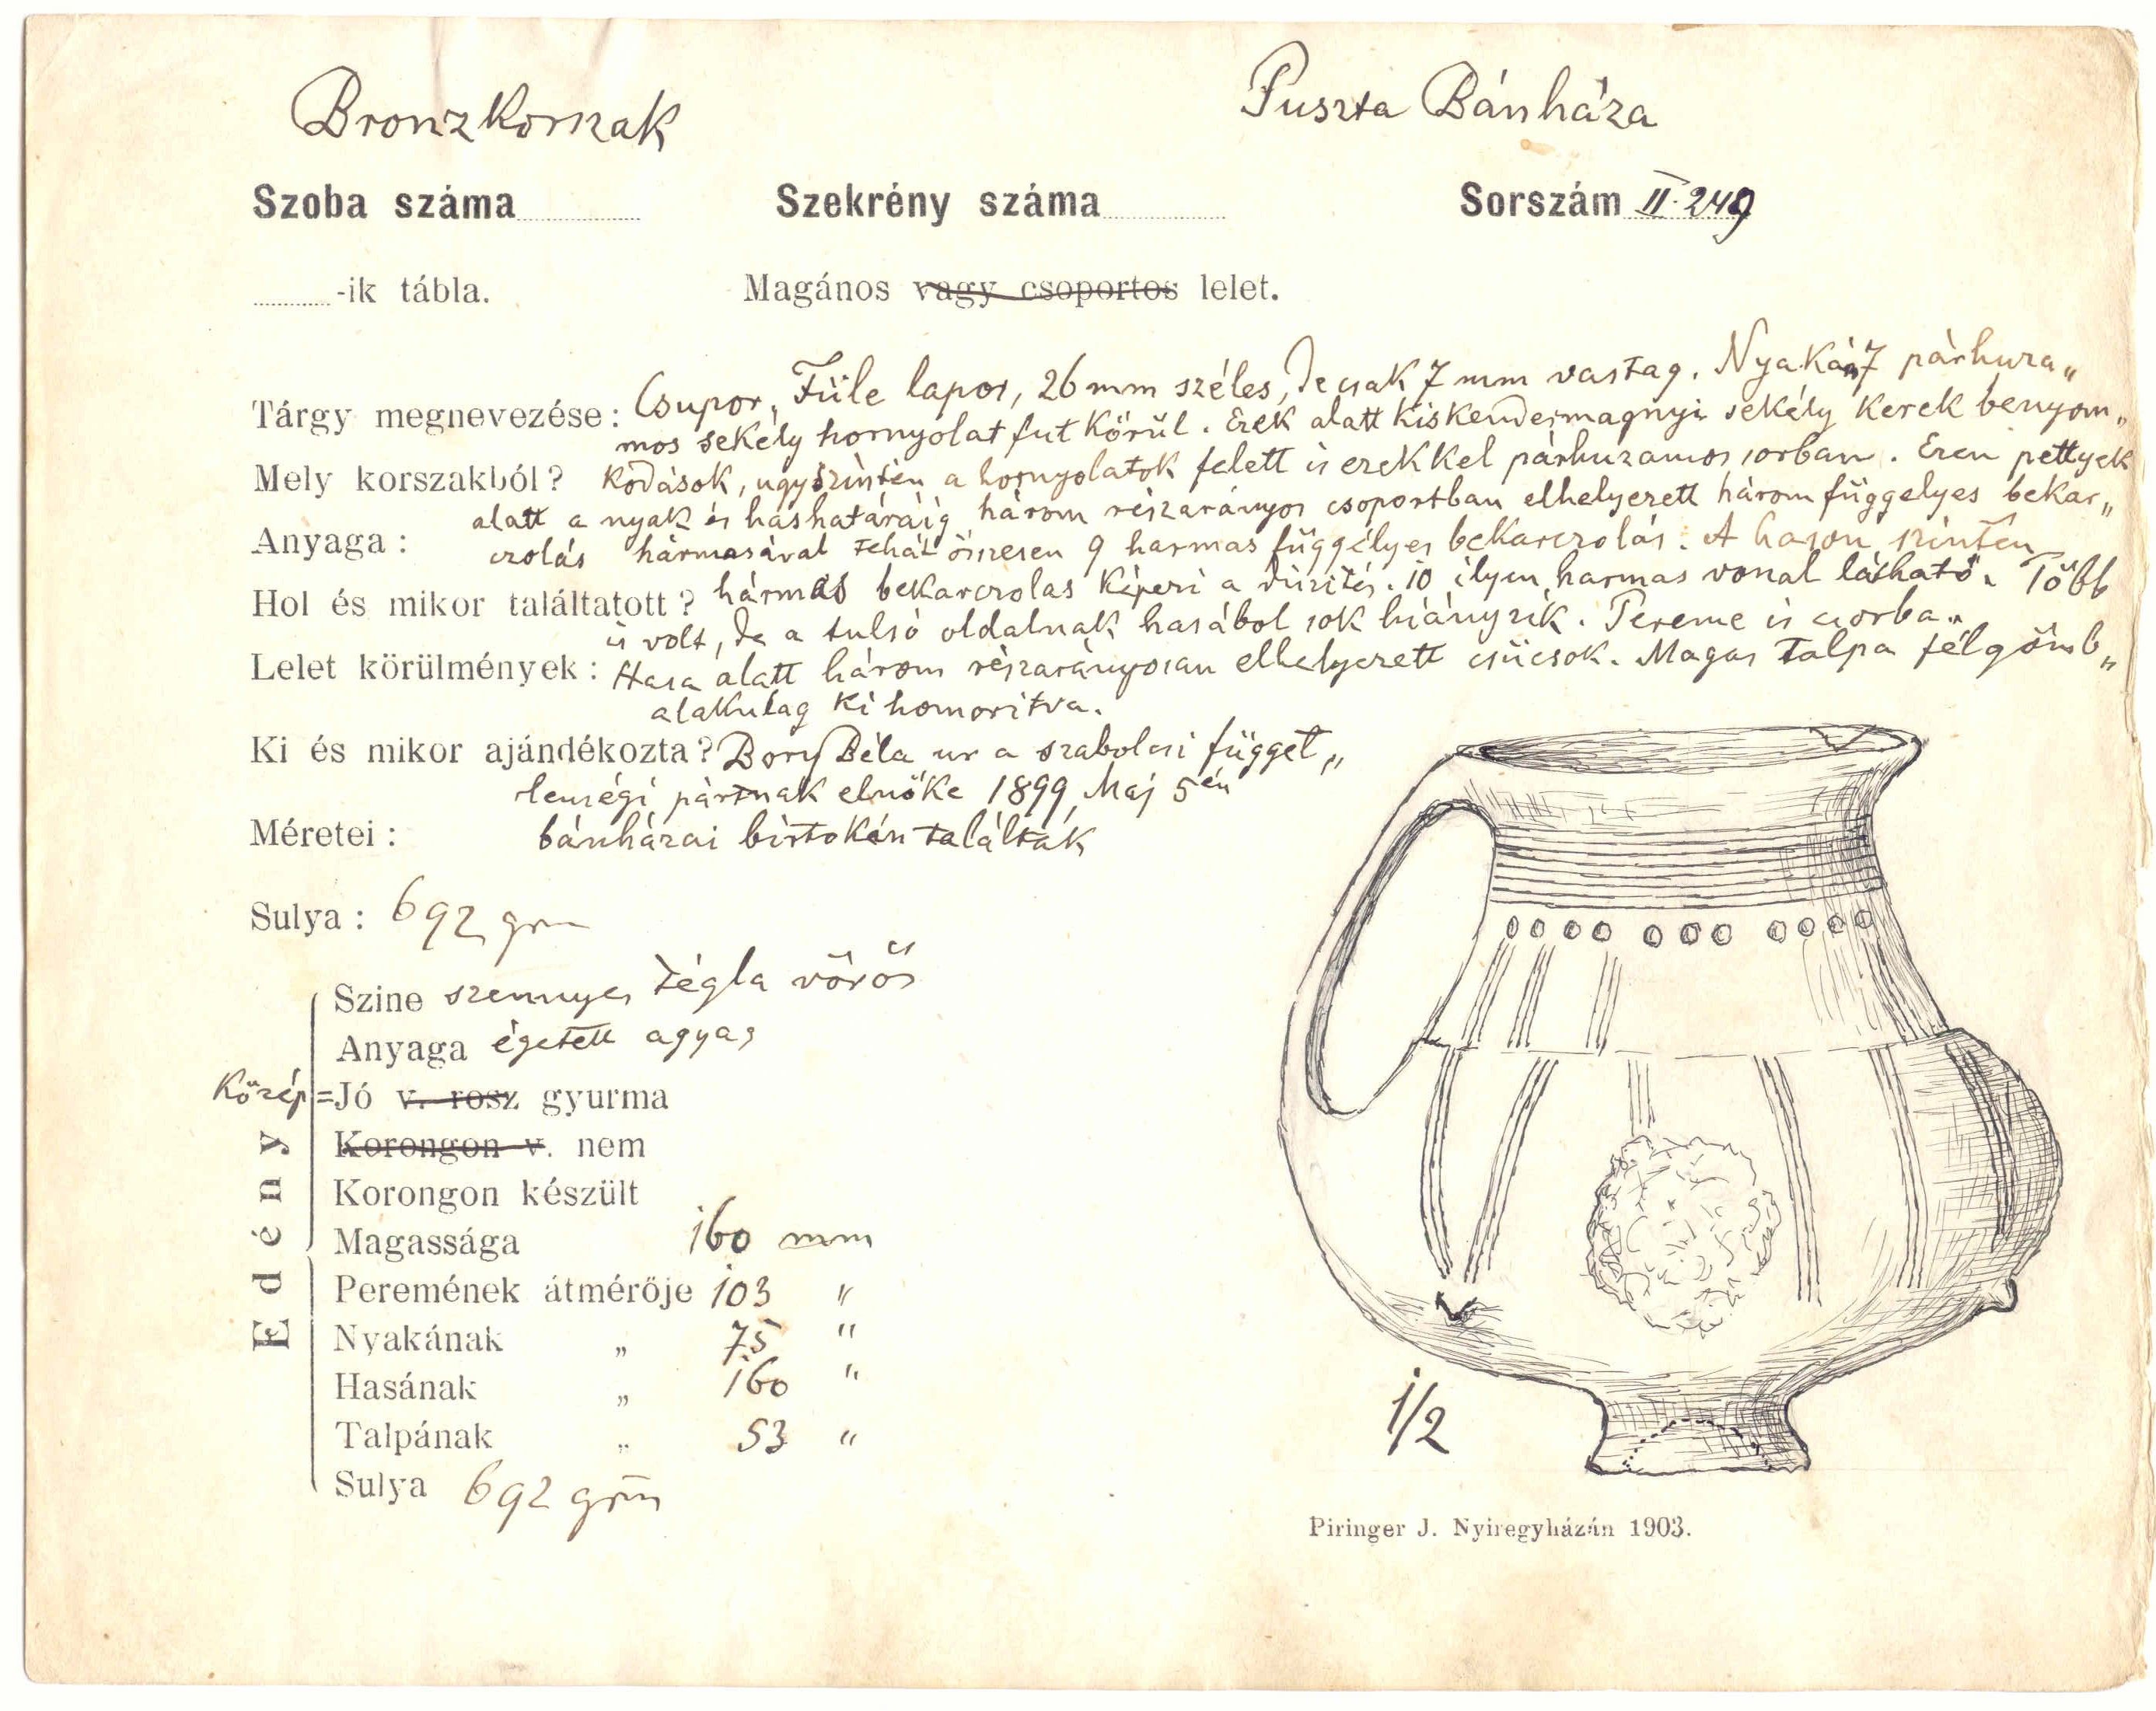 Bronzkorszak
Puszta Bánháza
Szoba száma
Szekrény száma
Sorszám II. 249
-ik tábla.
Magános vagy csoportos lelet.
Tárgy megnevezése: Csupor, Füle lapos, 26 mm széles, de csak 7 mm vastag. Nyakán 7 párhuza„
mos sekély hornyolat fut körül. Ezek alatt kiskendermagnyi sekély kerek benyom„
Mely korszakból? kodások, ugyszintén a hornyolatok felett is ezekkel párhuzamos sorban. Ezen pettyek
alatt a nyak és hashatáráig három részarányos csoportban elhelyezett három függelyes bekar„
Anyaga: czolás hármasával tehát összesen 9 harmas függélyes bekarczolás. A hason szintén
Hol és mikor találtatott? hármas bekarczolas képezi a diszités. 10 ilyen harmas vonal látható. Több
is volt, de a tulsó oldalnak hasából sok hiányzik. Pereme is csorba.
Lelet körülmények: Hasa alatt három részarányosan elhelyezett csücsok. Magas talpa félgömb„
alakulag ki homoritva.
Ki és mikor ajándékozta? Bory Béla ur a szabolcsi függet„
lenségi pártnak elnöke 1899 Maj 5én
Méretei: bánházai birtokán találták
Sulya: 692 grm
Edény
Szine szennyes tégla vörös
Anyaga égetett agyag
Közép=Jó v. rosz gyurma
Korongon v. nem
Korongon készült
Magassága 160 mm
Peremének átmérője 103 "
Nyakának „ 75 "
Hasának „ 160 "
Talpának „ 53 "
Sulya 692 grm
1/2
Piringer J. Nyiregyházán 1903.